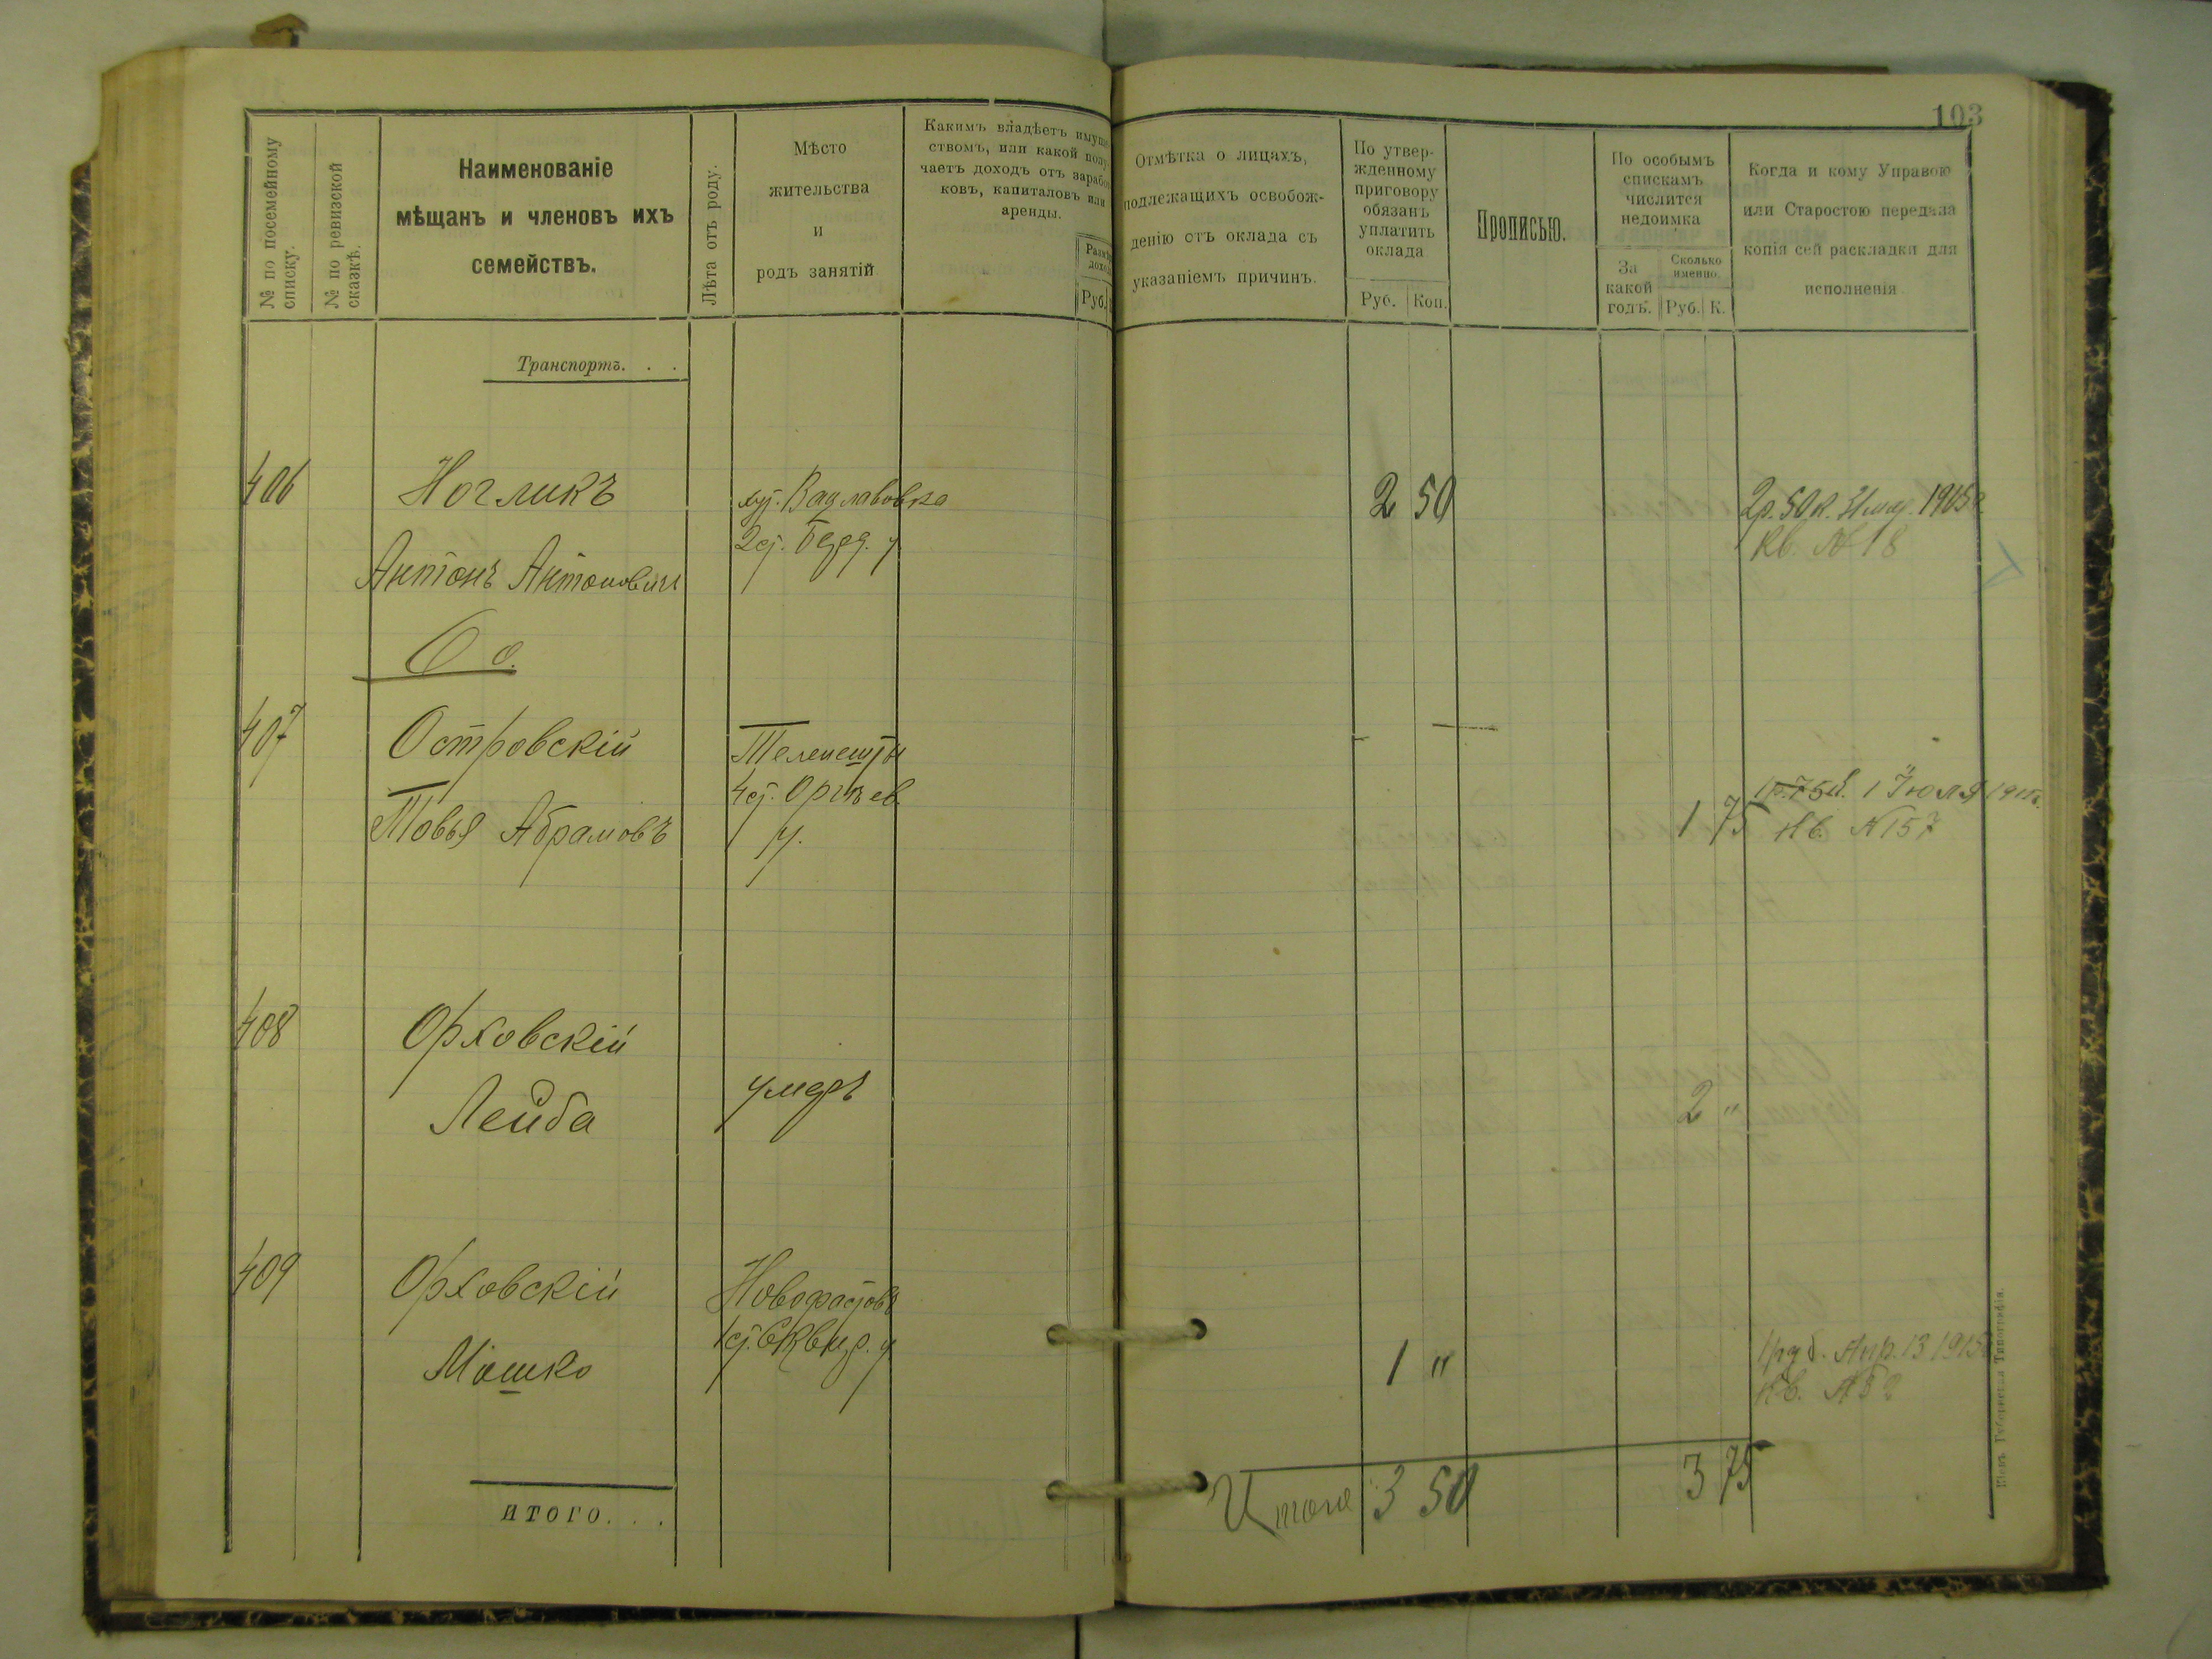 103
№ по посемейному
списку.
№ по ревизской
сказкѣ.
Наименованіе
мѣщанъ и членовъ ихъ
семействъ.
Лѣта отъ роду.
Мѣсто
жительства
и
родъ занятій
Какимъ владѣетъ имуще
ствомъ, или какой полу
чаетъ доходъ отъ зарабо
ковъ, капиталовъ или
аренды.
Руб.
Отмѣтка о лицахъ,
подлежащихъ освобож-
денію отъ оклада съ
указаніемъ причинъ.
По утвер-
жденному
приговору
обязанъ
уплатить
оклада
Руб. Коп.
Прописью.
По особымъ
спискамъ
числится
недоимка
За
какой
годъ.
Сколько
именно.
Руб. К.
Когда и кому Управою
или Старостою передана
копія сей раскладки для
исполненія
Транспортъ. . .
406 Ногликъ
Антонъ Антоновичъ
2 50
2р. 50к. 1915
Кв. № 18
О о.
407 Островскій
Товья Абрамовъ
Телешты
4 ст. Оргѣев.
у.
1 75
1р. 75к. 1 Іюля
Кв. № 157
408 Орховскій
Лейба
умеръ
2 "
409 Орховскій
Мошко
1 ст. Сквир. у
1 "
1 руб. Апр. 13 1915
Кв. №
итого. . .
Итого 3 50 3 75
Типографія.